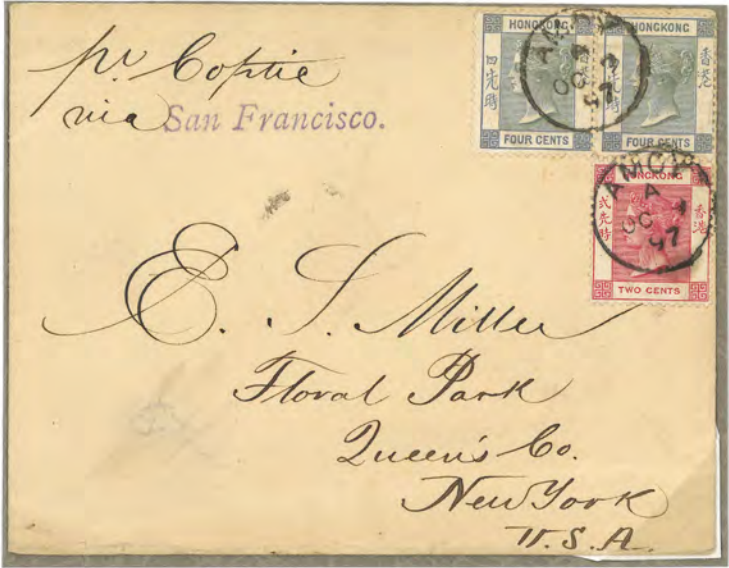 pr Coptic
via San Francisco.
HONGKONG
四先時
FOUR CENTS
HONGKONG
香港
FOUR CENTS
AMOY
A
OC
97
HONGKONG
式先時
香港
TWO CENTS
AMOY
A
OC 4
97
E. S. Miller
Floral Park
Queen's Co.
New York
U.S.A.